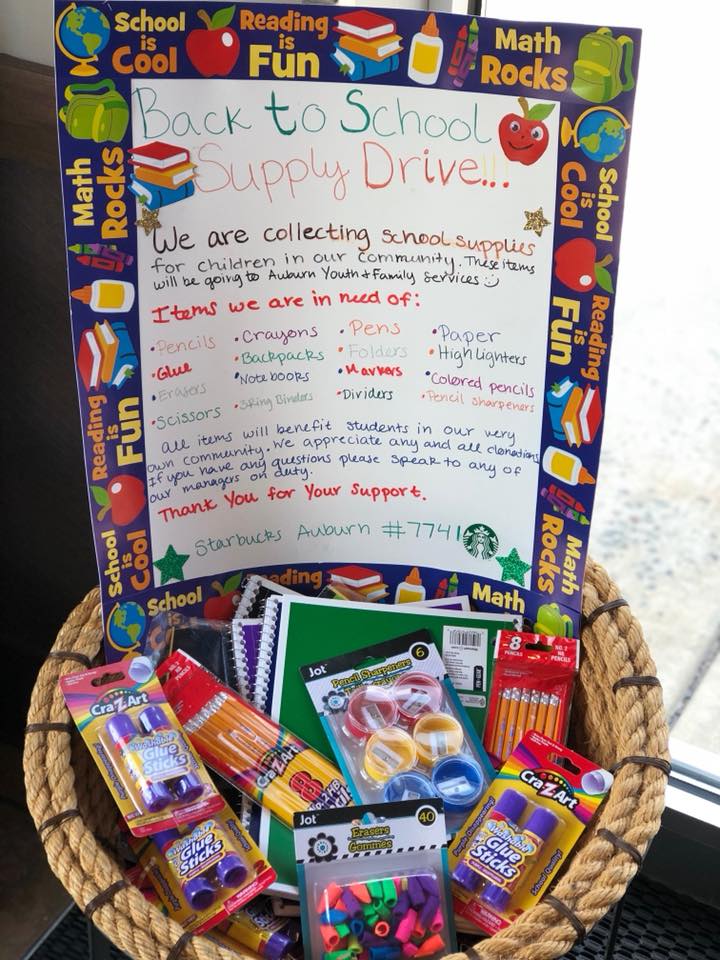 School is Cool
Reading is Fun
Math Rocks
Math Rocks
School is Cool
Reading is Fun
Reading is Fun
School is Cool
Math Rocks
Back to School
Supply Drive!!!
We are collecting school supplies
for children in our community. These items
will be going to Auburn Youth + Family Services
Items we are in need of:
• Pencils • Crayons • Pens • Paper
• Glue • Backpacks • Folders • Highlighters
• Erasers • Notebooks • Markers • Colored pencils
• Scissors • 3 Ring Binders • Dividers • Pencil sharpeners
All items will benefit students in our very
own community. We appreciate any and all donations.
If you have any questions please speak to any of
our managers on duty.
Thank You for Your Support.
Starbucks Auburn #7741
School
ading is
Math
Jot
Pencil Sharpeners
6
8
PENCILS
NO. 2
HB
PENCILS
CraZArt
Washable
Glue
Sticks
CraZArt
Jot
Erasers
Gommes
40
CraZArt
Washable
Glue
Sticks
School Quality
Washable
Glue
Sticks